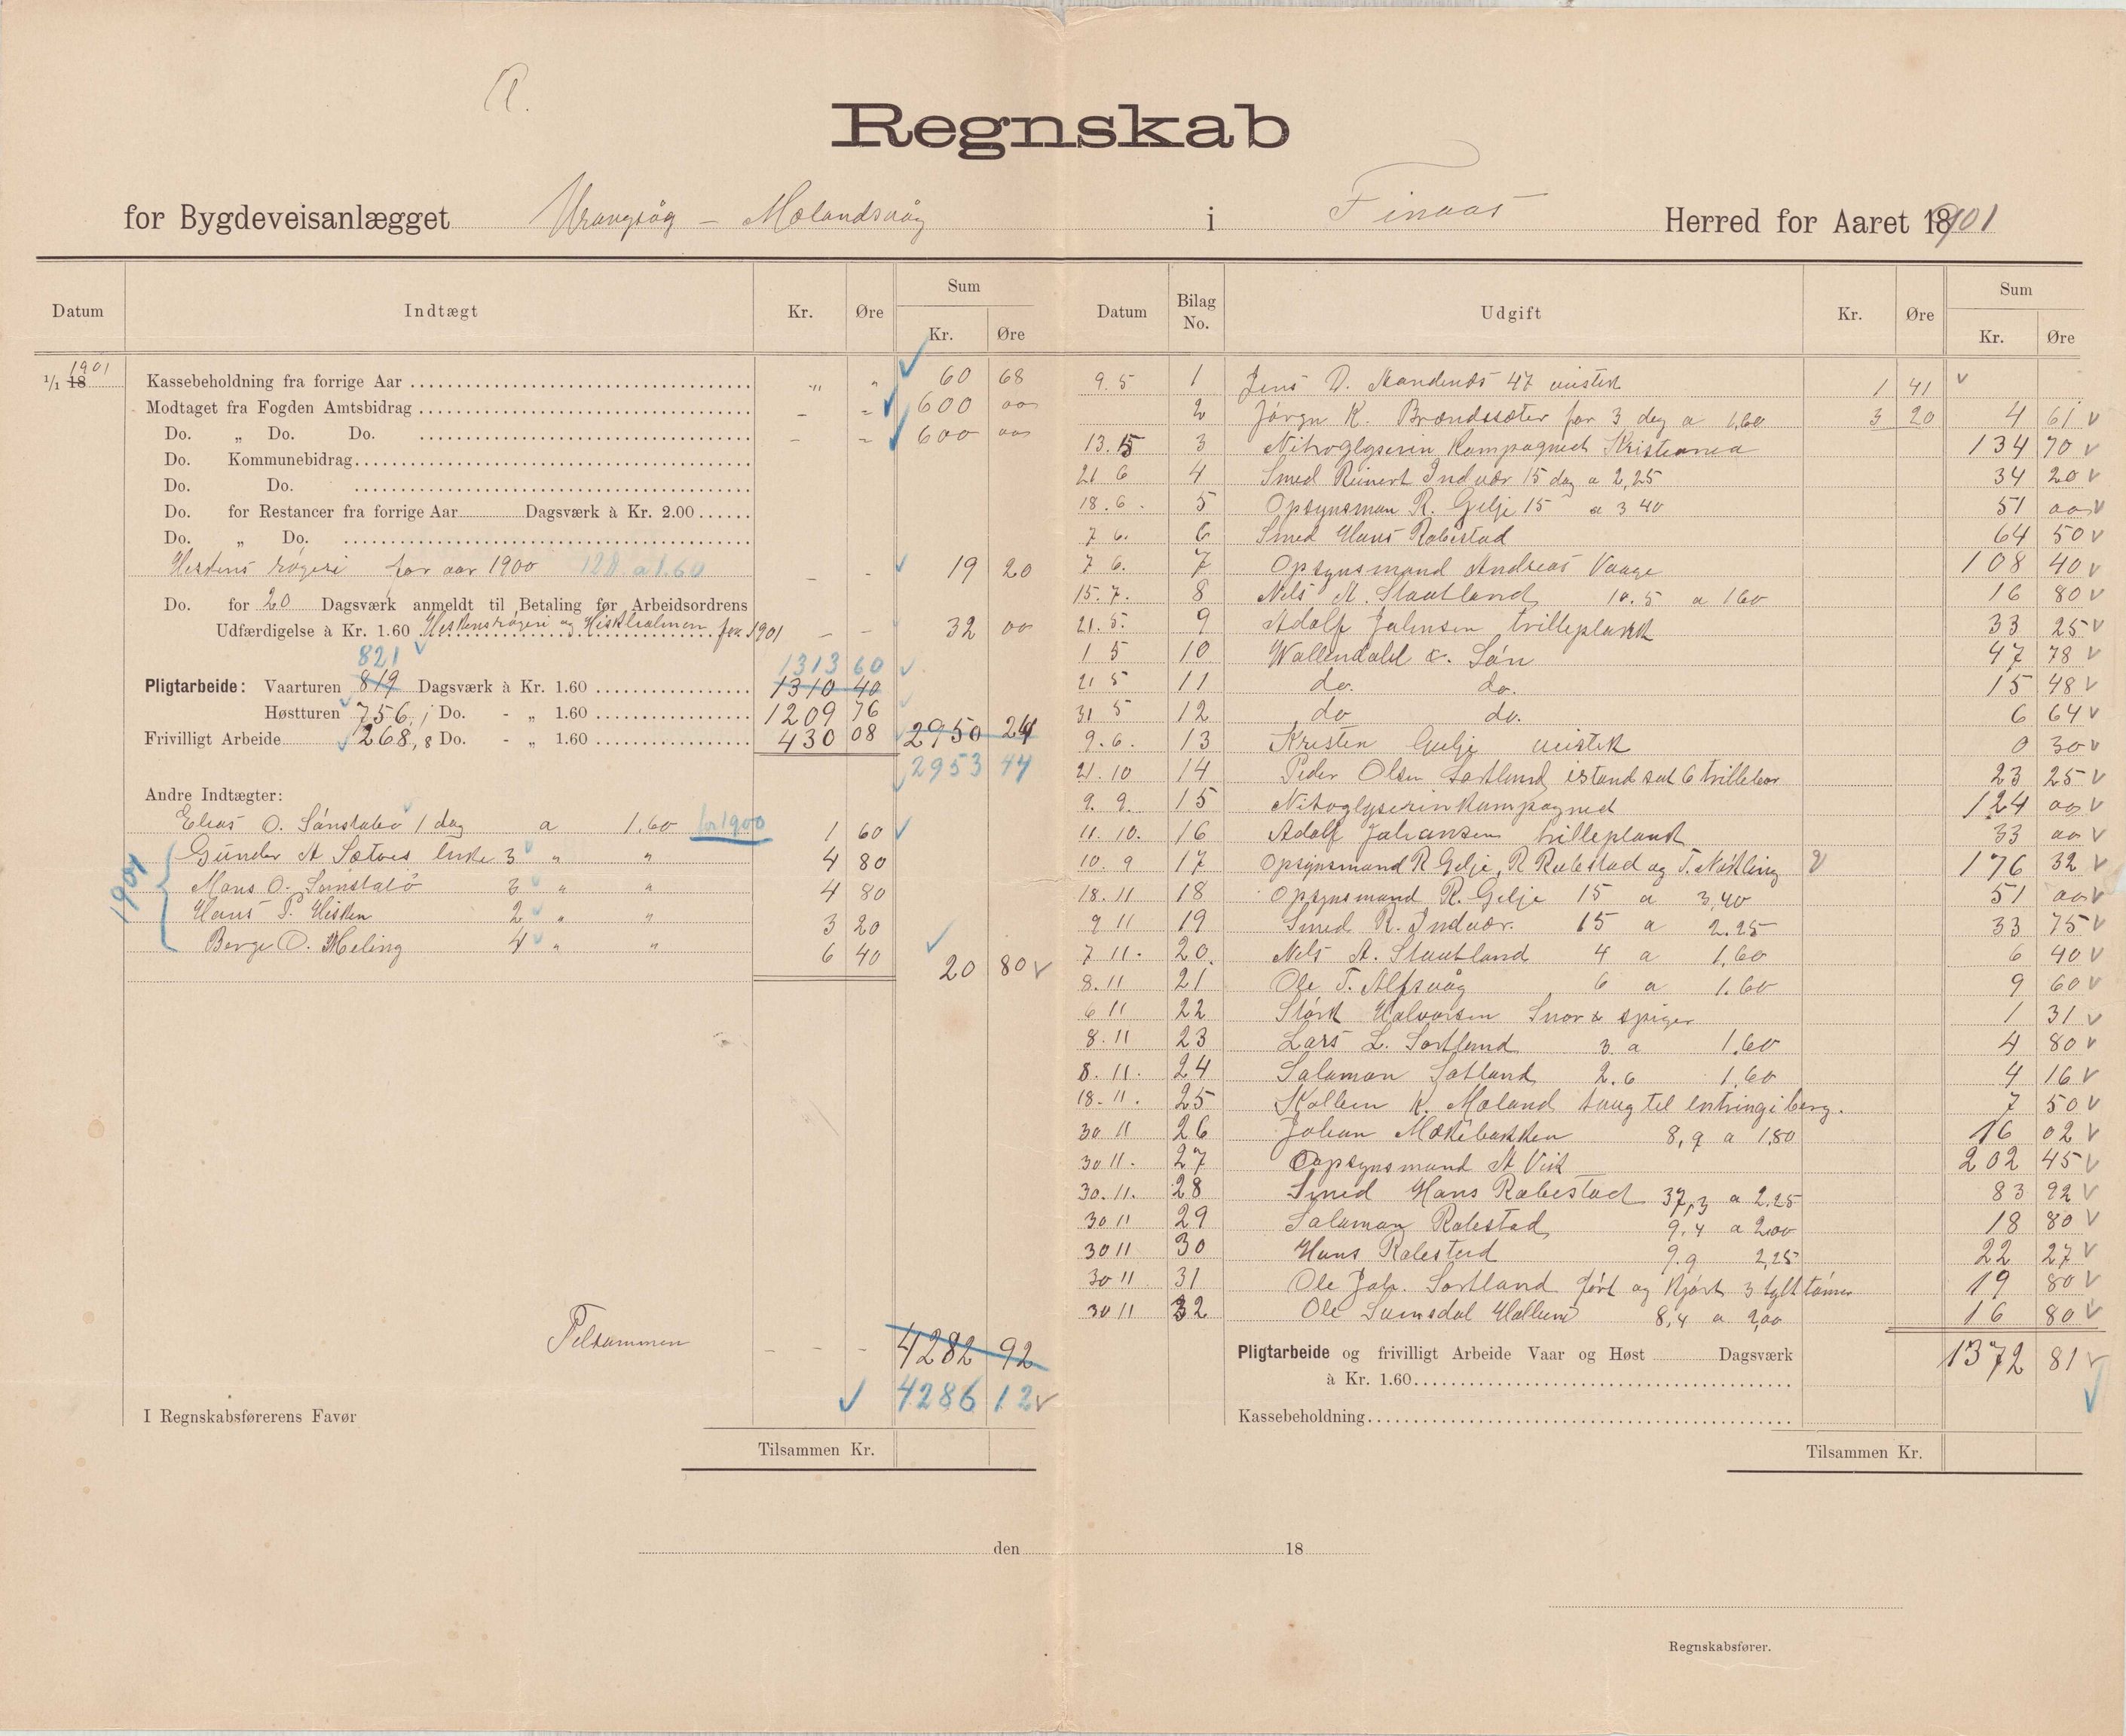 R.
Regnskab
for Bygdeveisanlægget Urangsåg – Mælandsvåg i Finaas Herred for Aaret 18901
Datum Indtægt Kr. Øre Sum Kr. Øre
1901
1/1 18 Kassebeholdning fra forrige Aar „ „ 60 68
Modtaget fra Fogden Amtsbidrag – - 600 00
Do. „ Do. Do. – - 600 00
Do. Kommunebidrag
Do. Do.
Do. for Restancer fra forrige Aar Dagsværk à Kr. 2.00
Do. „ Do.
for aar 1900 12 D a 1.60 – - 19 20
Do. for 20 Dagsværk anmeldt til Betaling før Arbeidsordrens
Udfærdigelse à Kr. 1.60 og for 1901 – - 32 00
821 1313 60
Pligtarbeide: Vaarturen 819 Dagsværk à Kr. 1.60 1310 40
Høstturen 756,1 Do. - „ 1.60 1209 76
Frivilligt Arbeide 268,8 Do. - „ 1.60 430 08 2950 24
2953 44
Andre Indtægter:
Elias O. Sønstabø 1 dag a 1.60 for 1900 1 60
1901
Gunder A Sætres enke 3 „ „ 4 80
Mons O. Sønstabø 3 „ „ 4 80
Hans P. Hisken 2 „ „ 3 20
Berge O. Meling 4 „ „ 6 40 20 80
Tilsammen - - - 4282 92
4286 12
I Regnskabsførerens Favør
Tilsammen Kr.
Datum Bilag No. Udgift Kr. Øre Sum Kr. Øre
9.5 1 Jens D. 47 1 41
2 Jørgn K. Brandssæter for 3 dag a 1,60 3 20 4 61
13.5 3 Nitroglyserin Kompagniet Kristiania 134 70
21 6 4 Smed Reinert Indvær 15 dag a 2,25 34 20
18.6. 5 Opsynsman R. Gelje 15 a 3 40 51 00
7 6. 6 Smed Hans Rabestad 64 50
7 6. 7 Opsynsmand Andreas Vaage 108 40
15.7. 8 Nels A. Stautland 10.5 a 160 16 80
21.5. 9 Adolf Johnsen trilleplank 33 25
1 5 10 Wallendahl & Søn 47 78
21 5 11 do. do. 15 48
31 5 12 do do. 6 64
9.6. 13 Kristen Gelje 0 30
21.10 14 Peder Olsen Sortland istand sat 6 trillebor 23 25
9. 9. 15 Nitroglyserinkompagnied 124 00
11. 10. 16 Adolf Johansen trilleplank 33 00
10. 9 17 Opsynsmand R Gelje, R Rabestad og T. Nøkling 176 32
18. 11 18 Opsynsmand R. Gelje 15 a 3,40 51 00
9 11 19 Smed R. Indvær. 15 a 2.25 33 75
7 11. 20. Nels A. Stautland 4 a 1,60 6 40
8. 11 21 Ole T. Alfsvåg 6 a 1.60 9 60
6 11 22 Størk Halvorsen Snor & spiger 1 31
8. 11 23 Lars L. Sortland 3 a 1.60 4 80
8. 11. 24 Salamon Sortland 2.6 1,60 4 16
18. 11. 25 Kolben K. Mæland taug til entring i berg. 7 50
30 11 26 Johan Mækebakken 8,9 a 1,80 16 02
30 11. 27 Opsynsmand A Vik 202 45
30. 11. 28 Smed Hans Rabestad 37,3 a 2,25 83 92
30 11 29 Salamon Rabestad 9.4 a 2.00 18 80
30 11 30 Hans Rabestad 9.9 2,25 22 27
30 11 31 Ole Joh. Sortland ført og kjørt 3 tylt tømmer 19 80
30 11 32 Ole Samsdal 8,4 a 2,00 16 80
Pligtarbeide og frivilligt Arbeide Vaar og Høst Dagsværk 1372 81
à Kr. 1.60
Kassebeholdning
Tilsammen Kr.
den 18
Regnskabsfører.